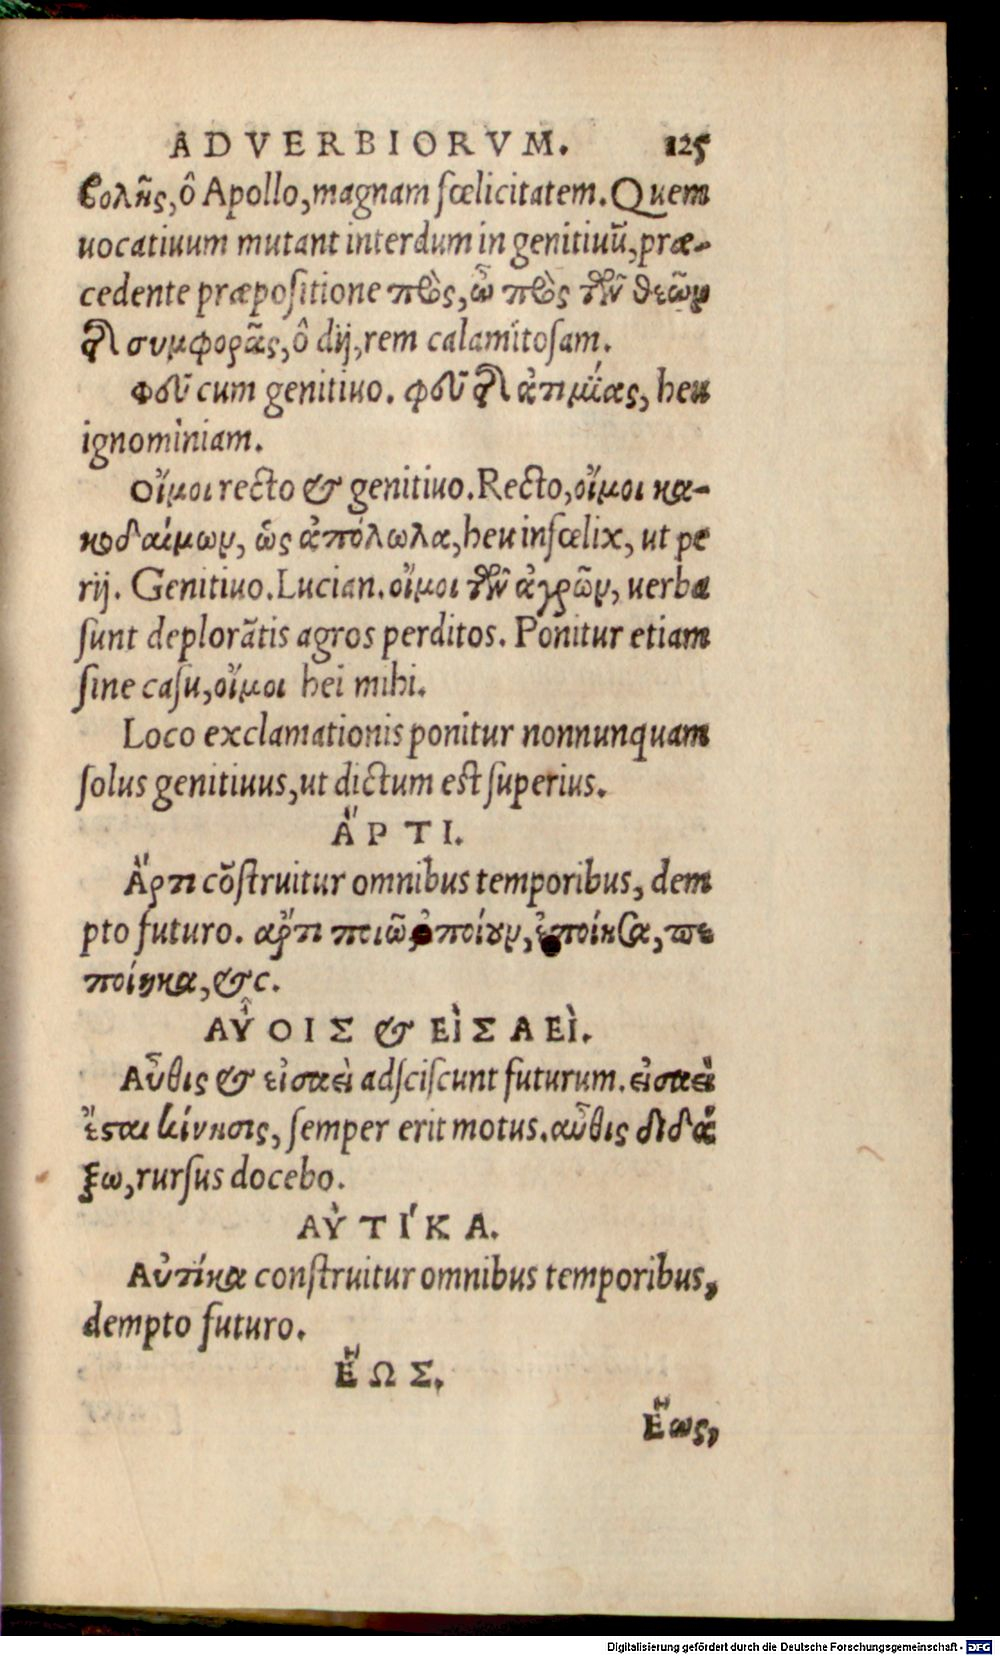 ADVERBIORVM. 125
βολῆς, ô Apollo, magnam fœlicitatem. Quem
uocatiuum mutant interdum in genitiuũ, præ-
cedente præpositione πρὸς, ὦ πρὸς τῶν θεῶν
τῆς συμφορᾶς, ô dij, rem calamitosam.
Φεῦ cum genitiuo. φεῦ τῆς ἀτιμίας, heu
ignominiam.
Οἴμοι recto & genitiuo. Recto, οἴμοι κα-
κοδαίμων, ὡς ἀπόλωλα, heu infœlix, ut pe
rij. Genitiuo. Lucian. οἴμοι τῶν ἀγρῶν, uerba
sunt deplorãtis agros perditos. Ponitur etiam
sine casu, οἴμοι hei mihi.
Loco exclamationis ponitur nonnunquam
solus genitiuus, ut dictum est superius.
ἌΡΤΙ.
Ἄρτι cõstruitur omnibus temporibus, dem
pto futuro. ἄρτι ποιῶ ἐποίουν, ἐποίησα, πε
ποίηκα, &c.
ΑὖΘΙΣ & ΕἰΣΑΕὶ.
Αὖθις & εἰσαεὶ adsciscunt futurum. εἰσαεὶ
ἔσται κίνησις, semper erit motus. αὖθις διδά
ξω, rursus docebo.
ΑὐΤΊΚΑ.
Αὐτίκα construitur omnibus temporibus,
dempto futuro.
ἝΩΣ.
Ἕως,
Digitalisierung gefördert durch die Deutsche Forschungsgemeinschaft - DFG